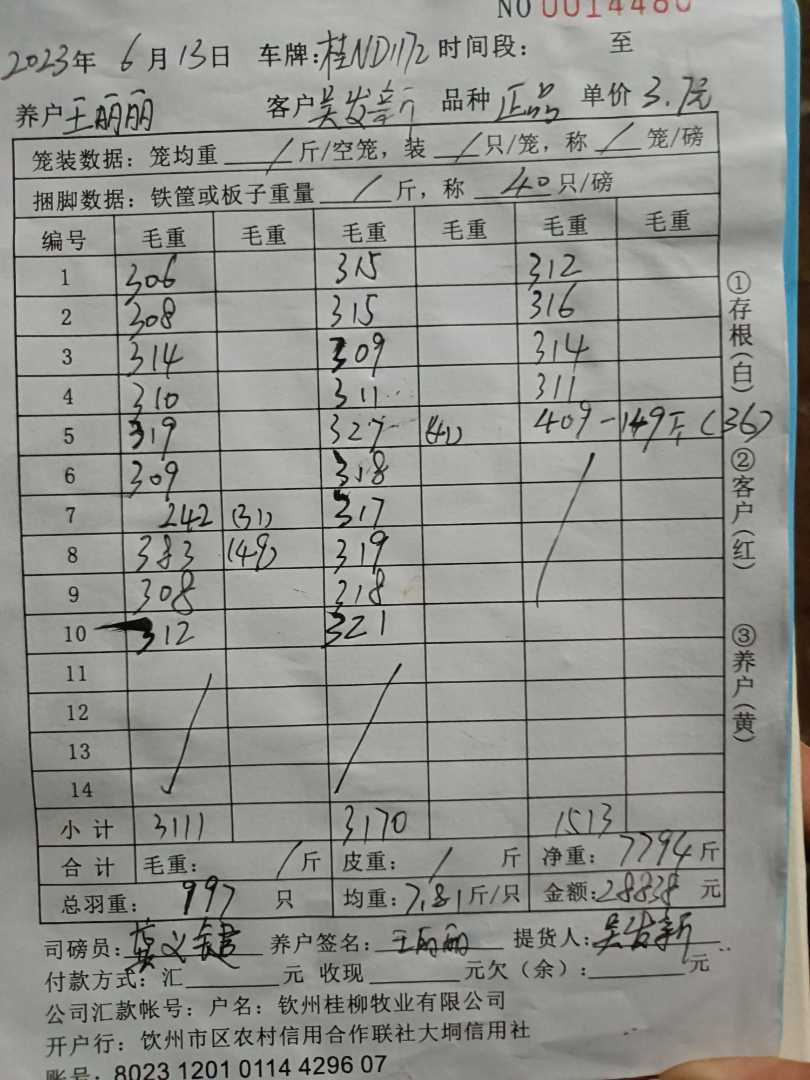 NO 0014480
2023年 6月13日 车牌:桂ND1172 时间段: 至
养户 王丽丽 客户 吴发新 品种 正品 单价 3.7元
笼装数据: 笼均重 / 斤/空笼, 装 / 只/笼, 称 / 笼/磅
捆脚数据: 铁筐或板子重量 / 斤, 称 40 只/磅
编号 毛重 毛重 毛重 毛重 毛重 毛重
1 306 315 312
2 308 315 316
3 314 309 314
4 310 311 311
5 319 327 (41) 409-149斤 (36)
6 309 318
7 242 (31) 317
8 383 (49) 319
9 308 318
10 312 321
11
12
13
14
小计 3111 3170 1513
合计 毛重: / 斤 皮重: / 斤 净重: 7794 斤
总羽重: 997 只 均重: 7.81 斤/只 金额: 28838 元
司磅员: 义健 养户签名: 王丽丽 提货人: 吴发新
付款方式: 汇 元 收现 元欠(余): 元
公司汇款帐号: 户名: 钦州桂柳牧业有限公司
开户行: 钦州市区农村信用合作联社大垌信用社
账号: 8023 1201 0114 4296 07
①存根(白)
②客户(红)
③养户(黄)